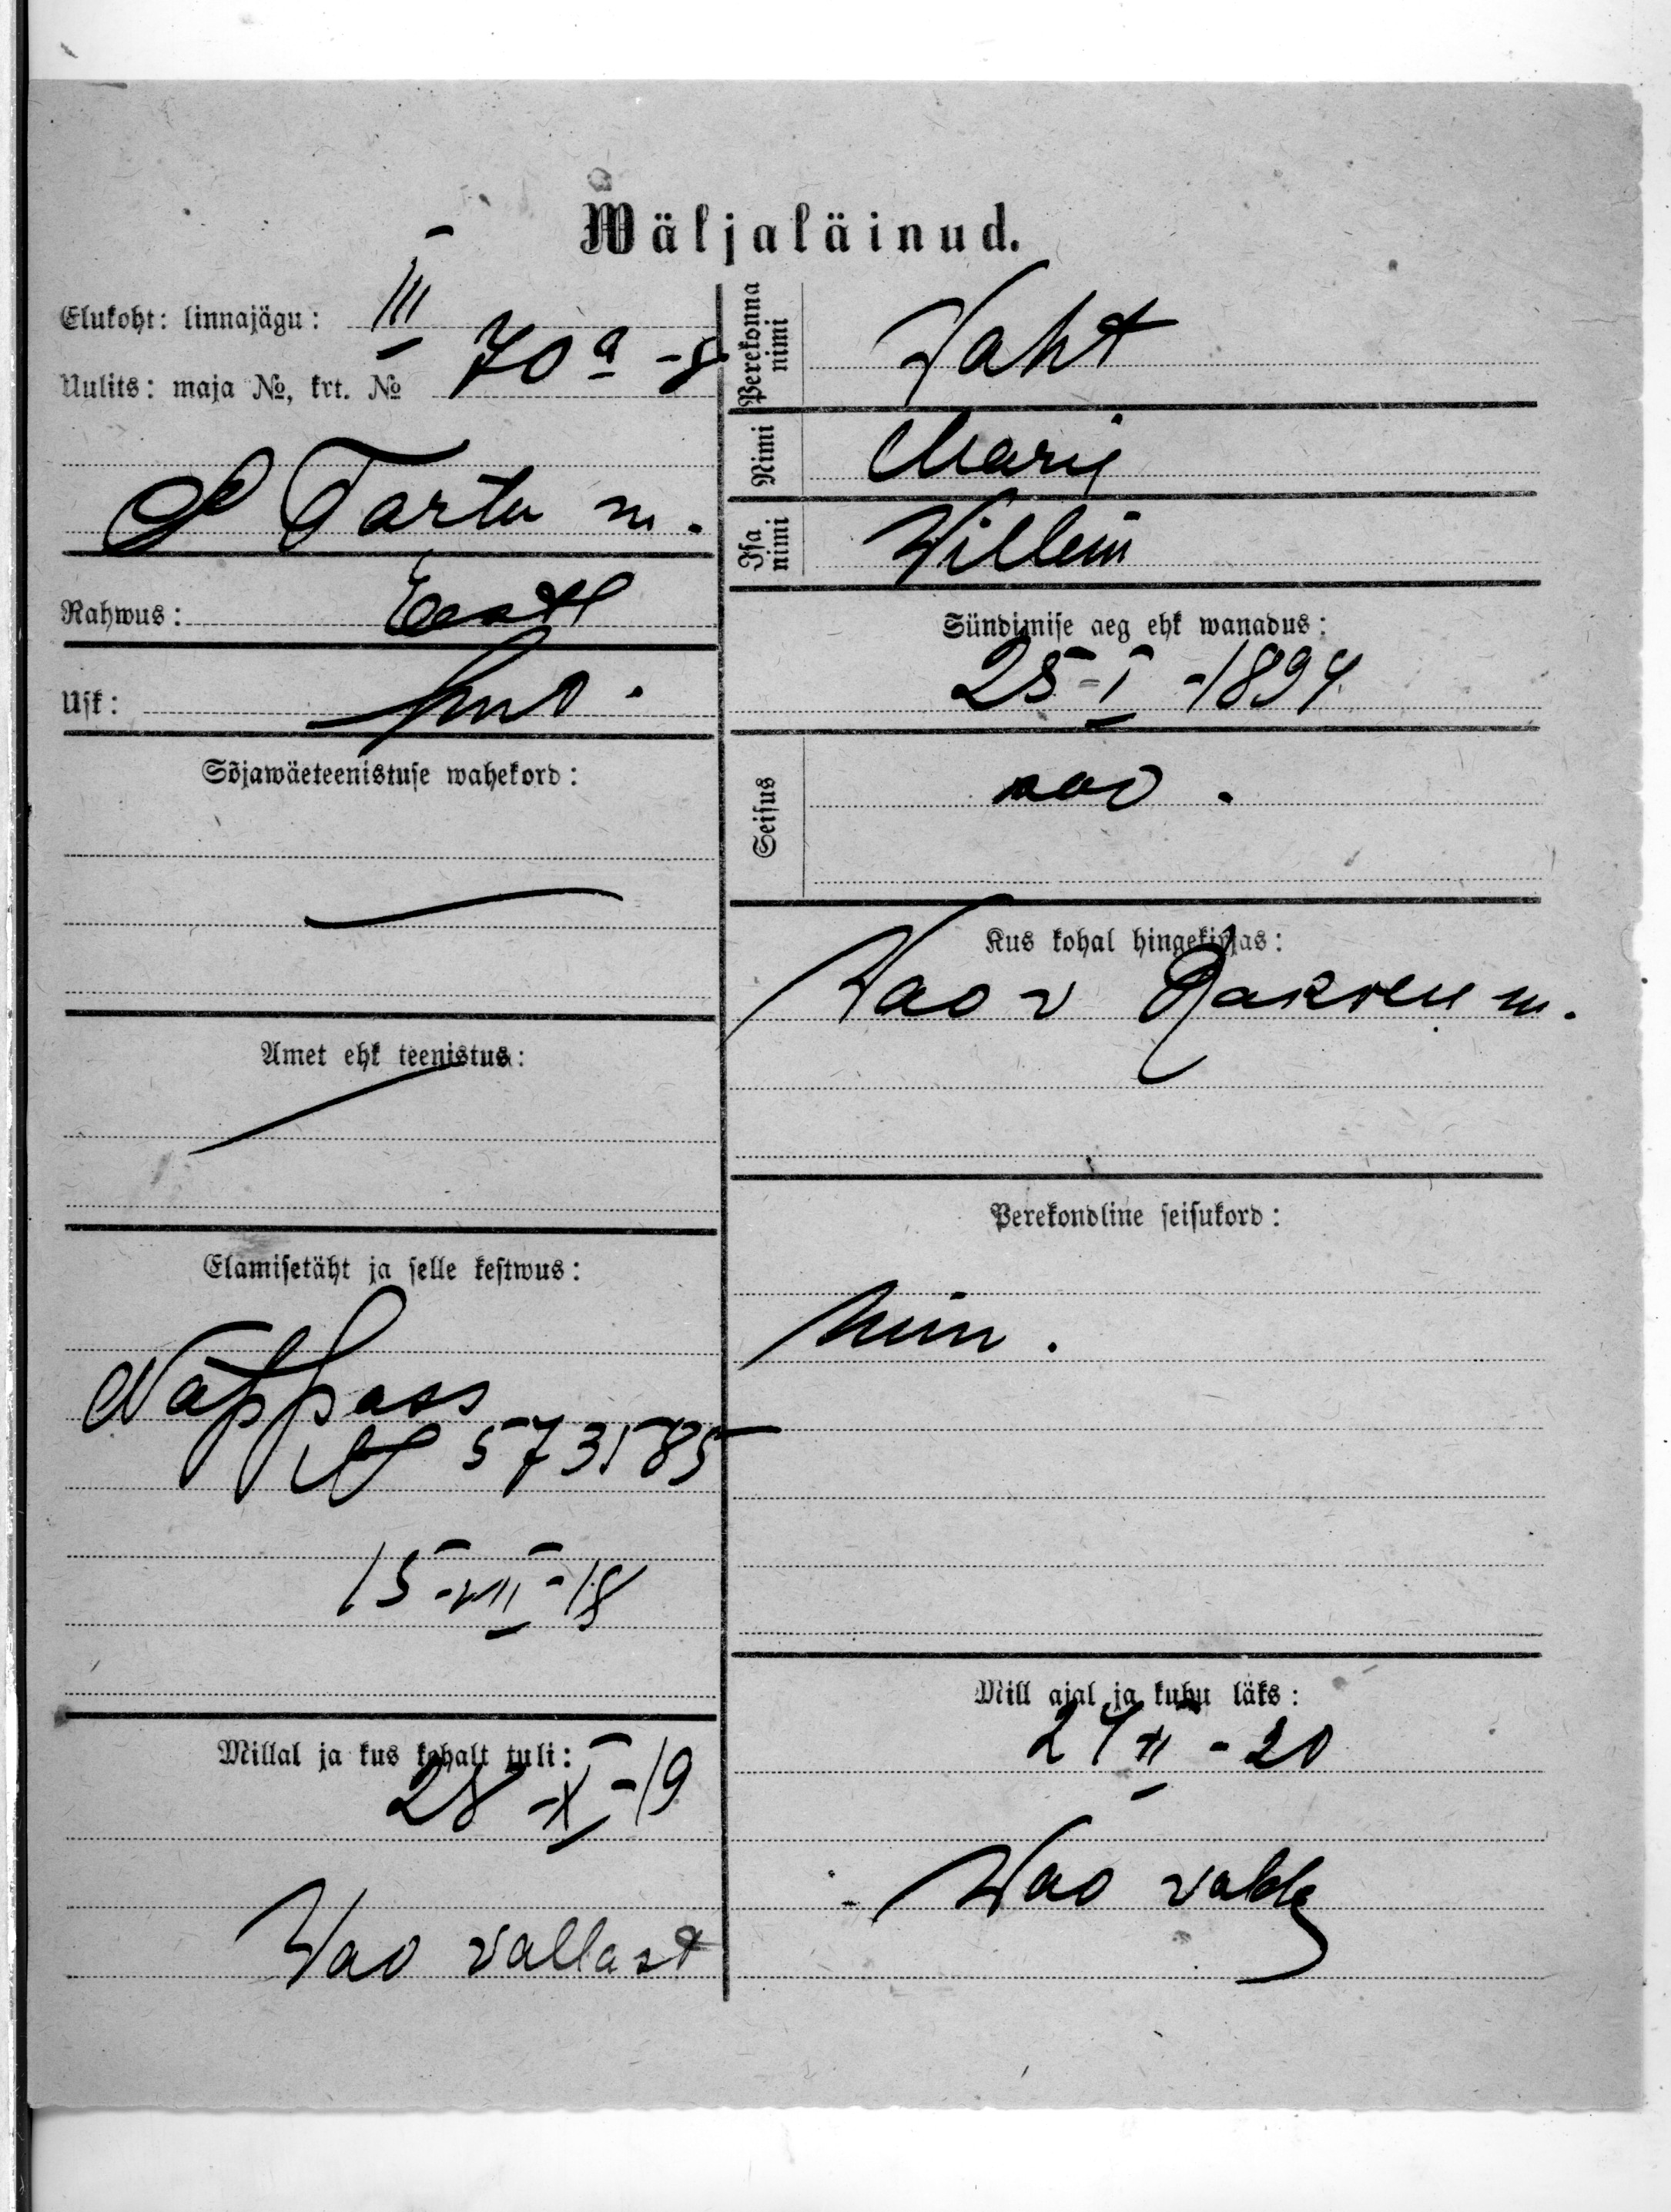 Wäljaläinud.
Elukoht: linnajägu: III
Uulits: maja №, krt. № 70a-8
S Tartu m.
Rahwus: Eestl
Usk: Lut.
Sõjawäeteenistuse wahekord:
Amet ehk teenistus:
Elamisetäht ja selle kestwus:
Näppass
№ 573585
15-VII-18
Millal ja kus kohalt tuli:
28-X-19
Wao vallast
Perekonna nimi Waht
Nimi Marij
Isa nimi Willem
Sündimise aeg ehk wanadus:
25-I-1894
Seisus
Kus kohal hingekirjas:
Wao v Rakveu m.
Perekondline seisukord:
Mill ajal ja kuhu läks:
24 II-20
Wao valda